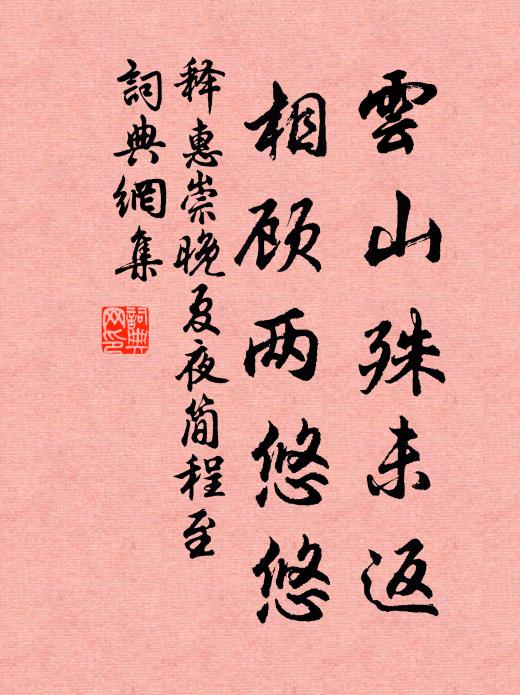 雲山殊未返
相顾两悠悠
释惠崇晚夏夜简程至
詞典網集
詞典网印